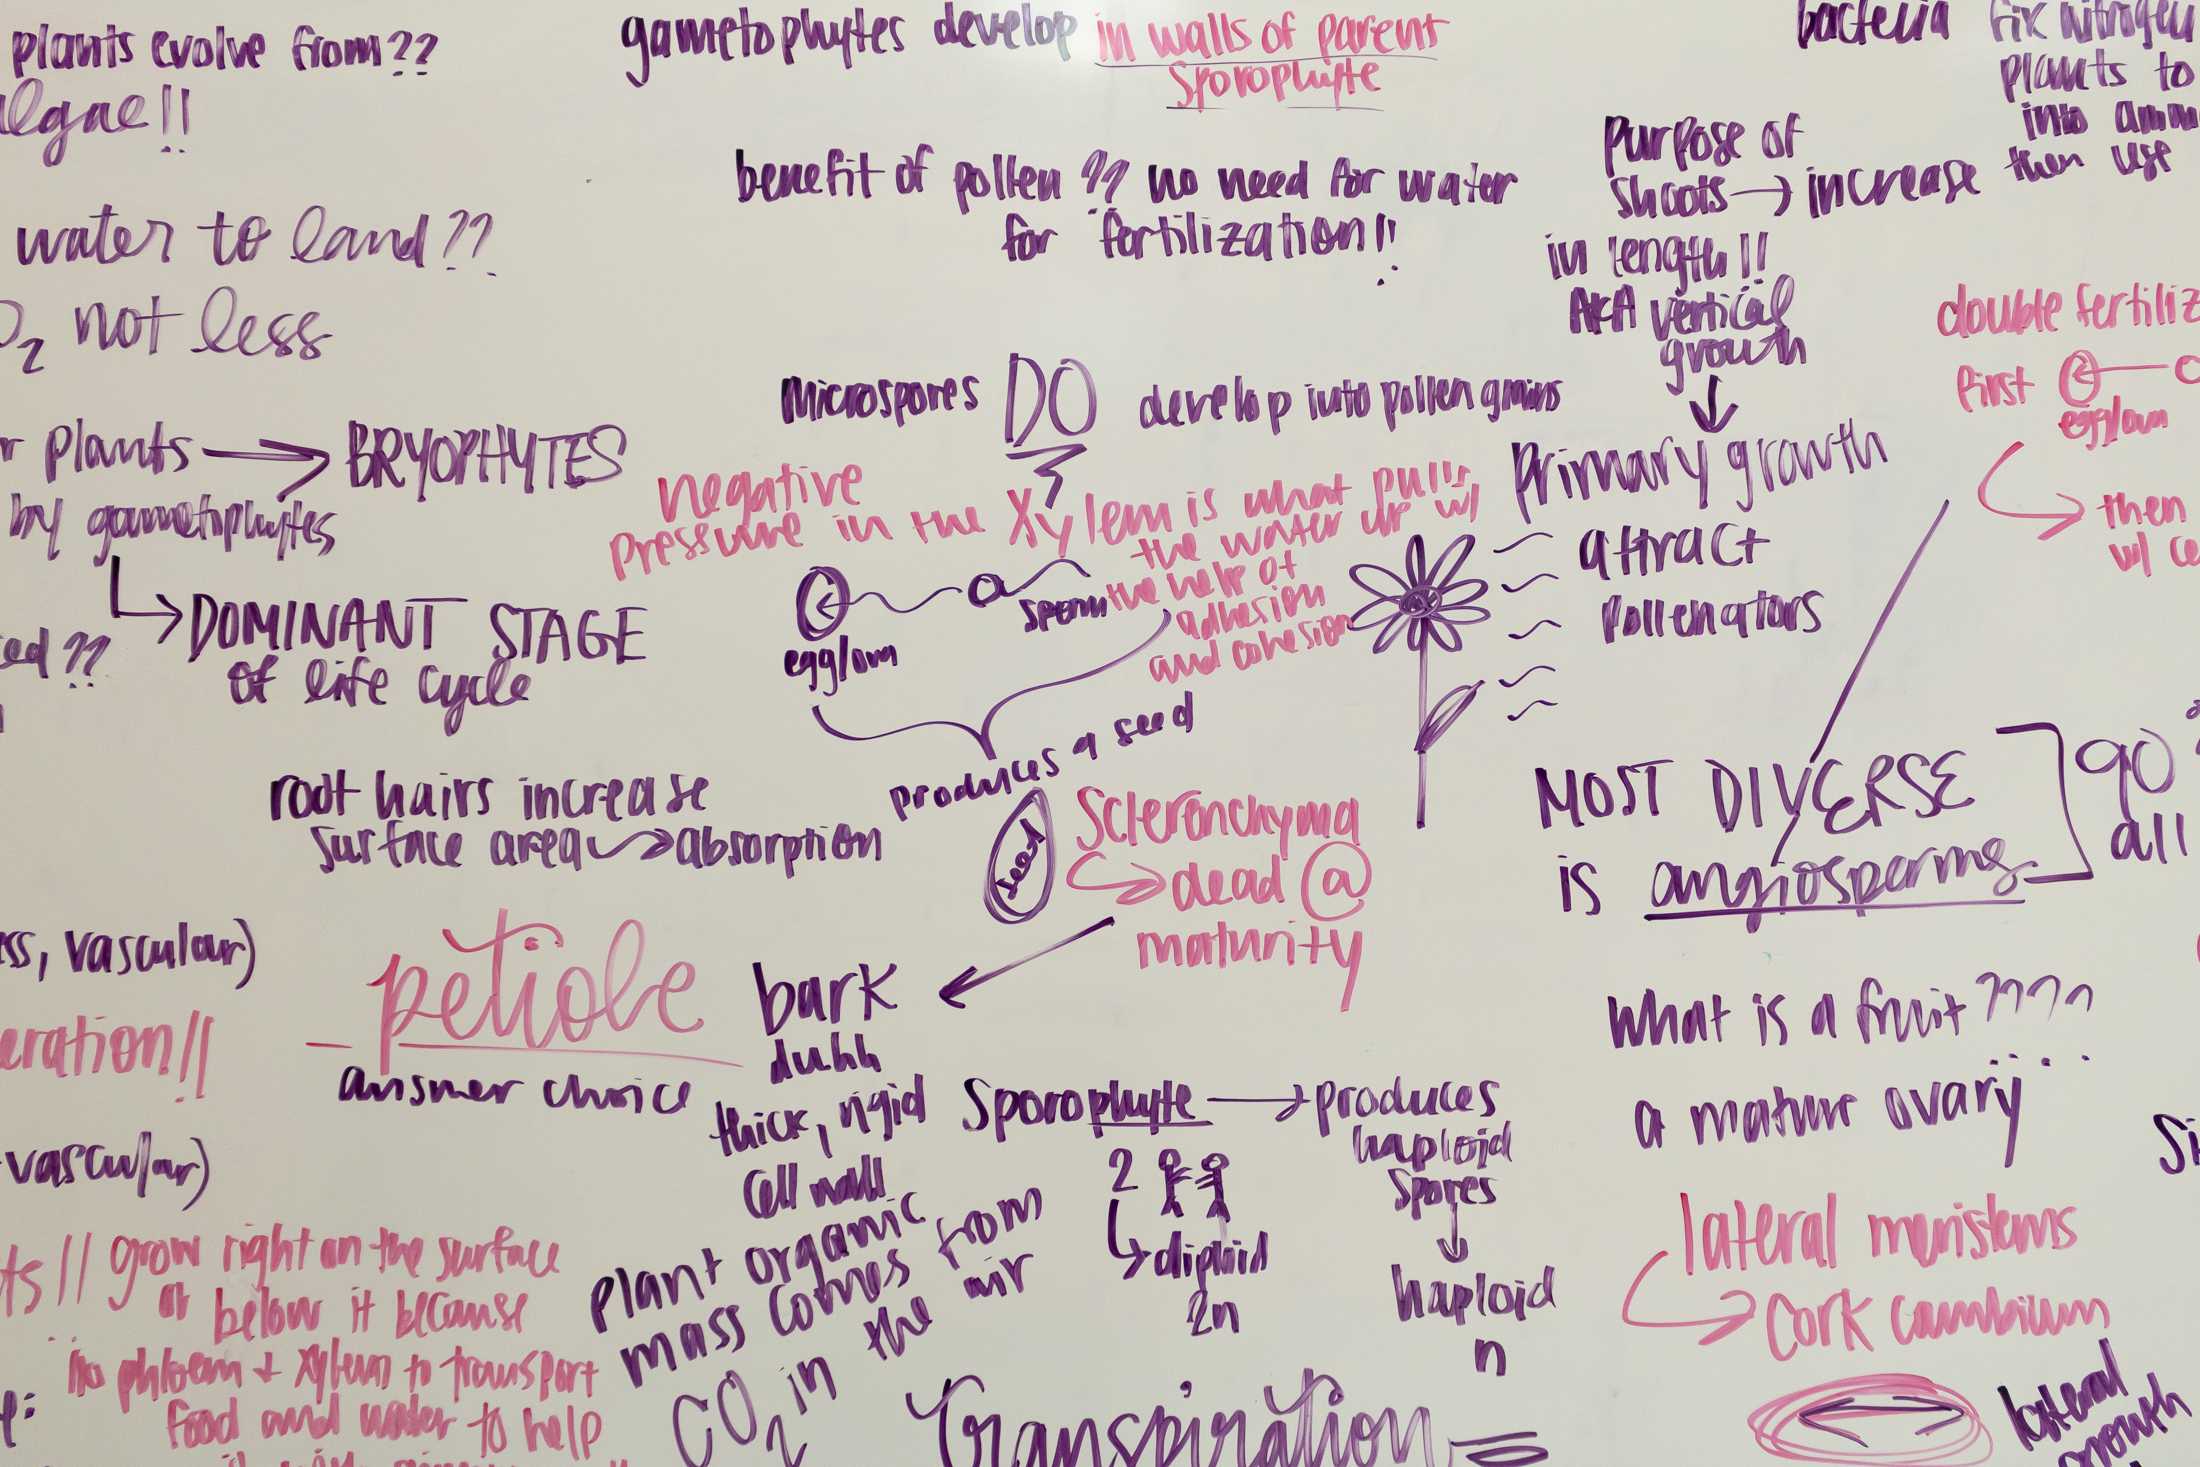 plants evolve from??
algae!!
water to land??
O₂ not less
plants → BRYOPHYTES
by gametophytes
↳ DOMINANT STAGE
of life cycle
gametophytes develop in walls of parent
Sporophyte
benefit of pollen ?? no need for water
for fertilization!!
Microspores DO develop into pollen grains
negative
pressure in the Xylem is what pulls
the water up w/
the help of
adhesion
and cohesion
sperm
egg/ova
produces a seed
seed
root hairs increase
surface area → absorption
Sclerenchyma
→ dead @
maturity
bacteria fix nitrogen
plants to
into
then use
purpose of
shoots → increase
in length!!
AKA vertical
growth
↓
Primary growth
attract
pollenators
double
first
egg/ova
then
w/
MOST DIVERSE
is angiosperms
90
all
vascular)
petiole
answer choice
vascular)
bark
duhh
thick, rigid
cell wall
Sporophyte → produces
haploid
spores
↓
haploid
n
2
↳ diploid
2n
what is a fruit ????
a mature ovary
lateral meristems
→ cork cambium
lateral
growth
grow right on the surface
or below it because
no phloem + xylem to transport
food and water to help
plant organic
mass comes from
CO₂ in the air
Transpiration =